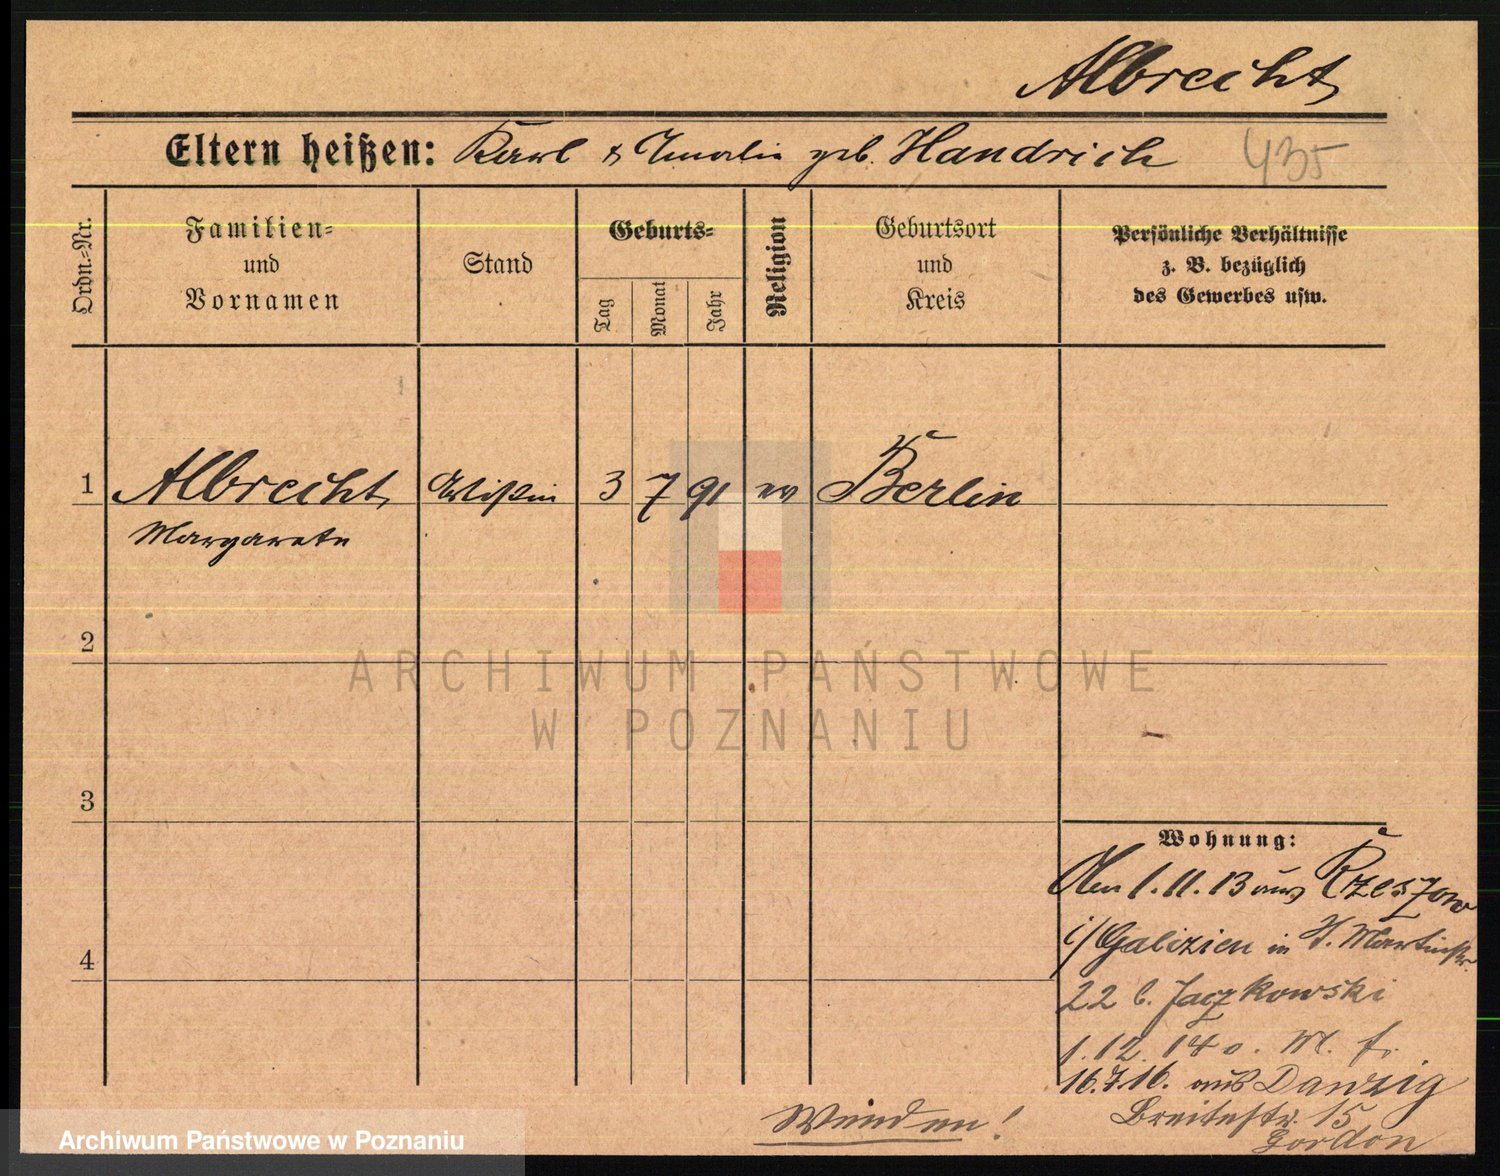 Albrecht
Eltern heißen: Karl & Amalie geb. Handrich 435
Ordn.-Nr.
Familien-
und
Vornamen
Stand
Geburts-
Tag
Monat
Jahr
Religion
Geburtsort
und
Kreis
Persönliche Verhältnisse
z. B. bezüglich
des Gewerbes usw.
1 Albrecht 3 7 91 ev Berlin
Margarete
2
3
4
Wohnung:
Am 1.11.13 aus Rzeszow
i/Galizien in St. Martinstr.
22 b. Jaczkowski
1.12.14 o. M. f.
16.7.16. aus Danzig
Breitestr. 15
Gordon
Wenden!
ARCHIWUM PAŃSTWOWE
W POZNANIU
Archiwum Państwowe w Poznaniu